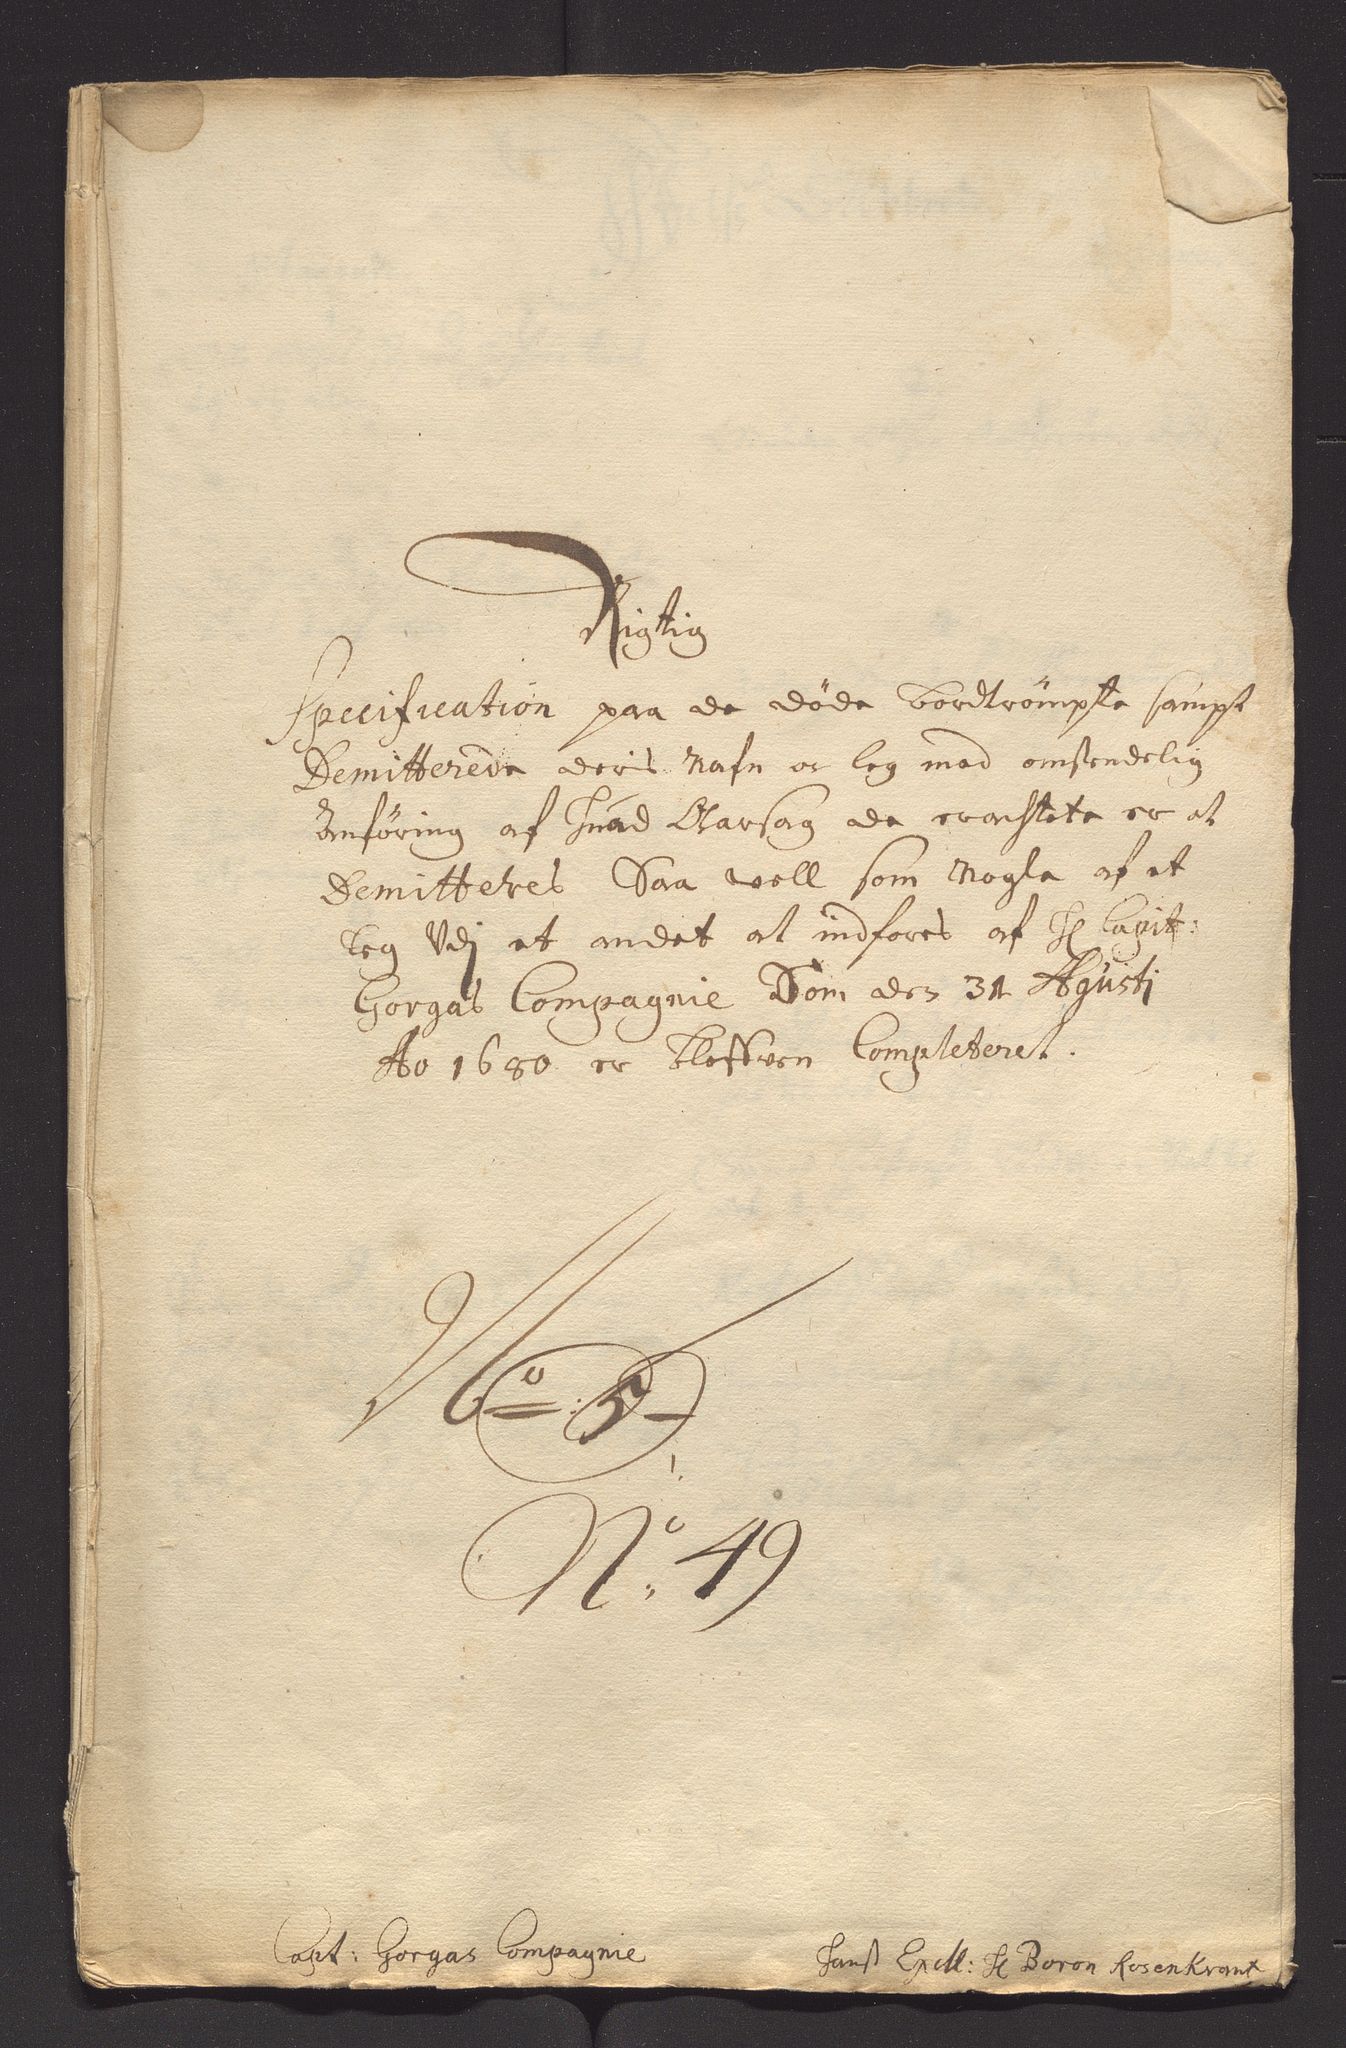 Rigtig
Specification paa de döde bordtrömpte sampt
Demitterede deris Nafn oc leg med omstendelig
Anföring af huad Aarsag de erachtete er at
Demitteres Saa vell som Nogle af et
leg Vdj et andet at indföres af H Capit:
Gorgas Compagnie Som den 31 Agustj
Ao 1680 er bleffven Completeret.
No: 5
No: 49
Capt: Gorgas Compagnie
Hans Excell: H Boron RosenKrant